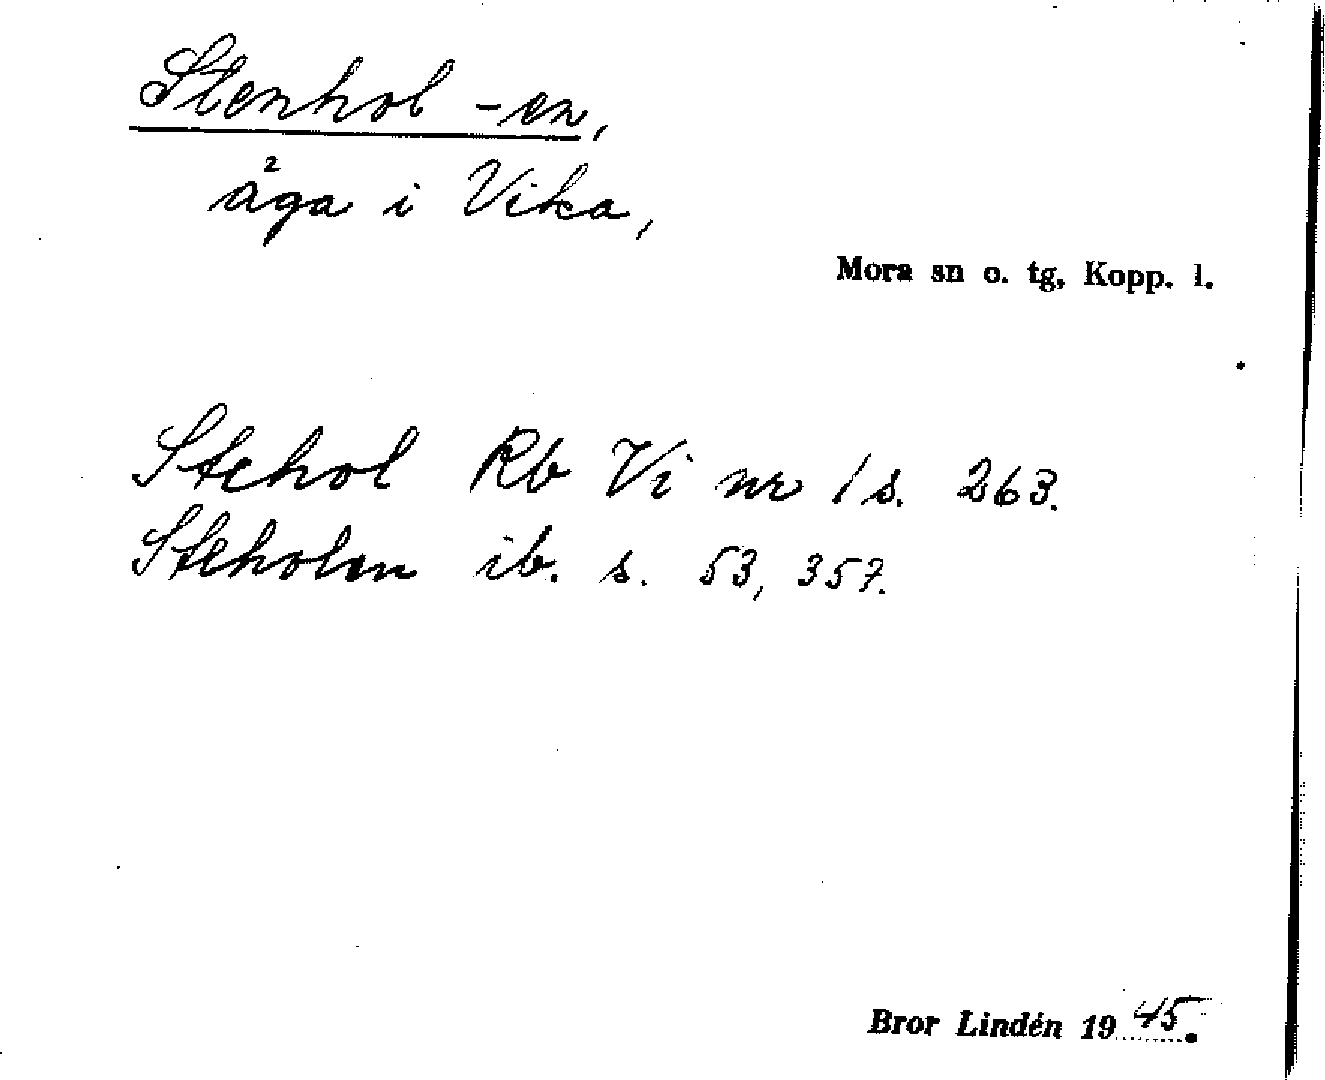 Stenhol -en,
äga i Vika,
Mora sn o. tg, Kopp. l.
Stehol Rb Vi nr 1 s. 263.
Steholen ib. s. 53, 357.
Bror Lindén 1945.